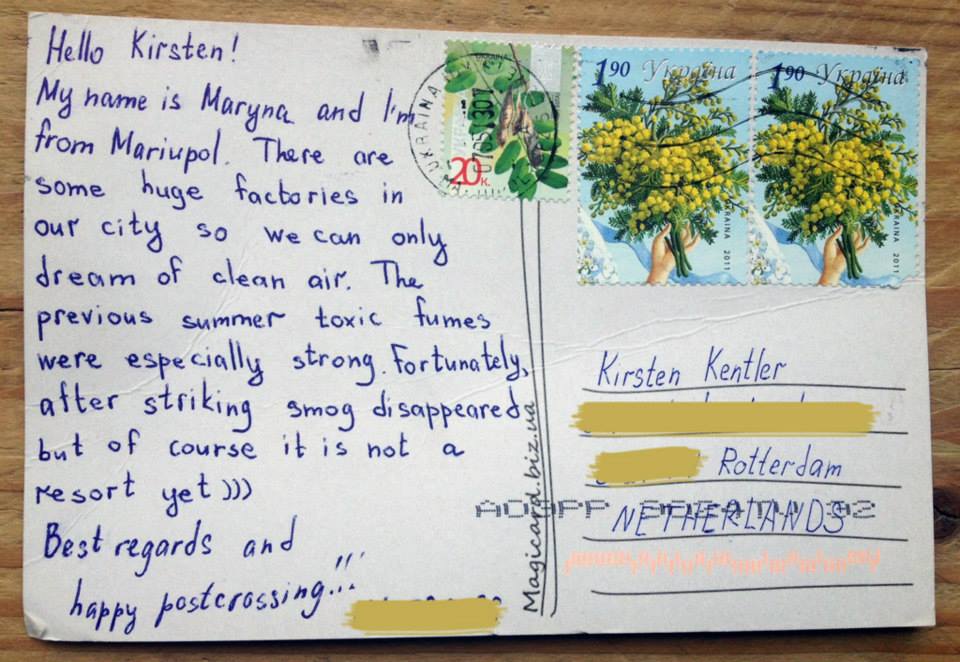 Hello Kirsten!
My name is Maryna and I'm
from Mariupol. There are
some huge factories in
our city so we can only
dream of clean air. The
previous summer toxic fumes
were especially strong. Fortunately,
after striking smog disappeared
but of course it is not a
resort yet )))
Best regards and
happy postcrossing!!!
Magicard.biz.ua
UKRAINA
20к.
1 90 Україна
UKRAINA 2011
1 90 Україна
UKRAINA 2011
Kirsten Kentler
Rotterdam
NETHERLANDS